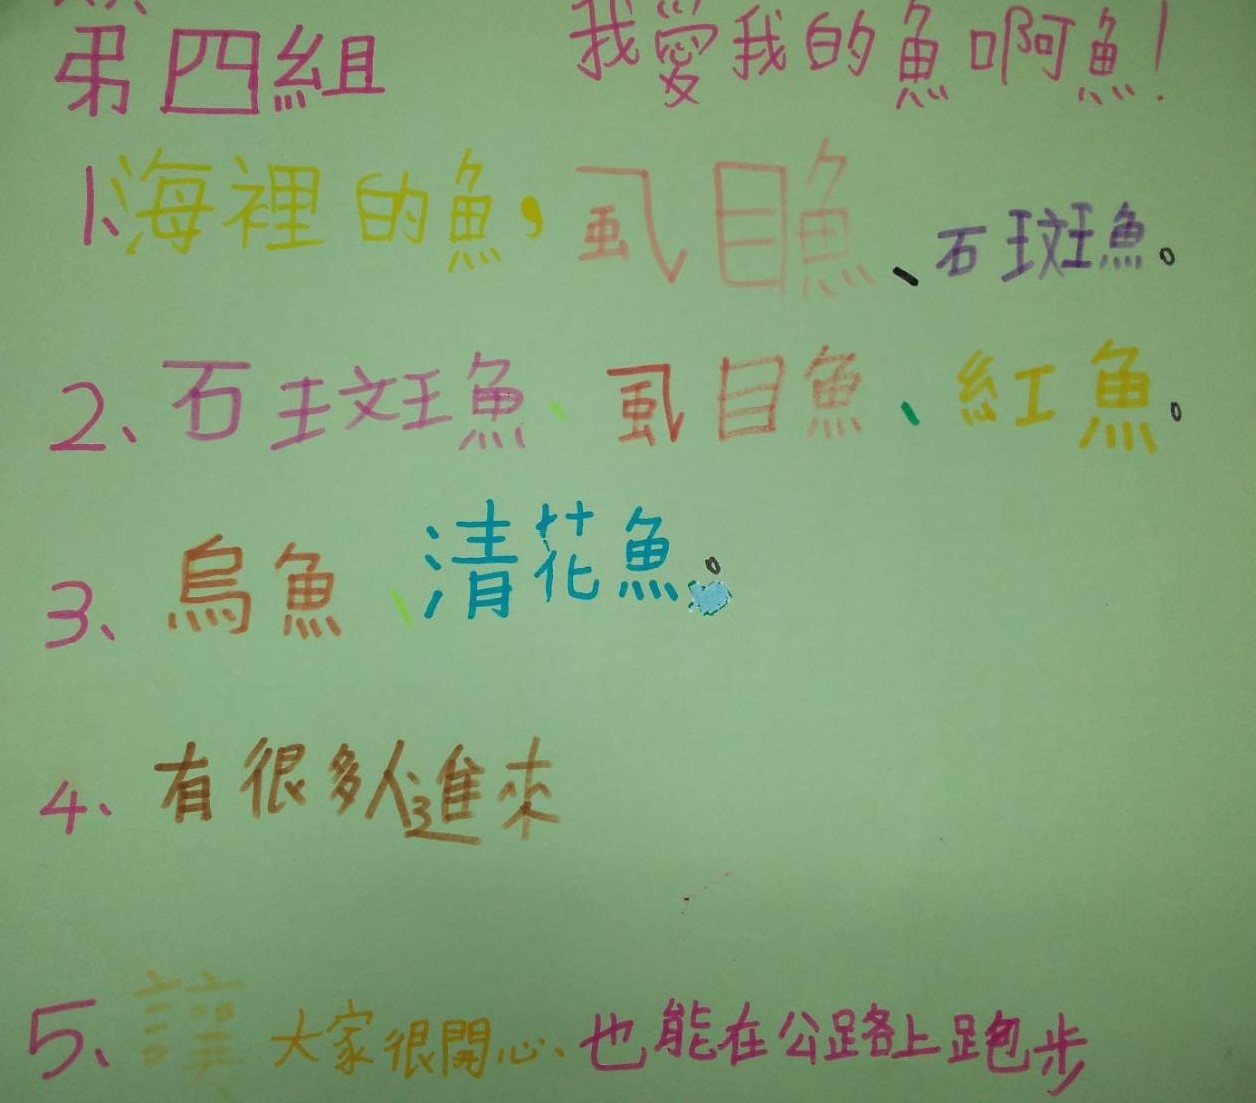 第四組 我愛我的魚啊魚!
1、海裡的魚,虱目魚、石斑魚。
2、石斑魚、虱目魚、紅魚。
3、烏魚、清花魚。
4、有很多人進來
5、讓大家很開心、也能在公路上跑步